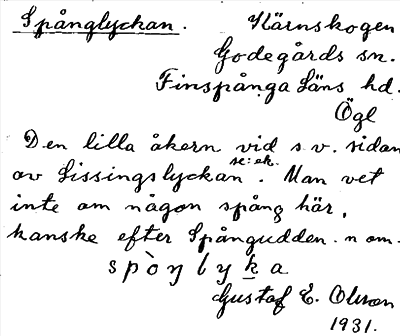 Spånglyckan. Kärnskogen
Godegårds sn.
Finspånga Läns hd.
Ögl
Den lilla åkern vid s.v. sidan
av Lissingslyckan se: ek. . Man vet
inte om någon spång här,
kanske efter Spångudden. n om.
spòŋlyka
Gustaf E. Olsson
1931.